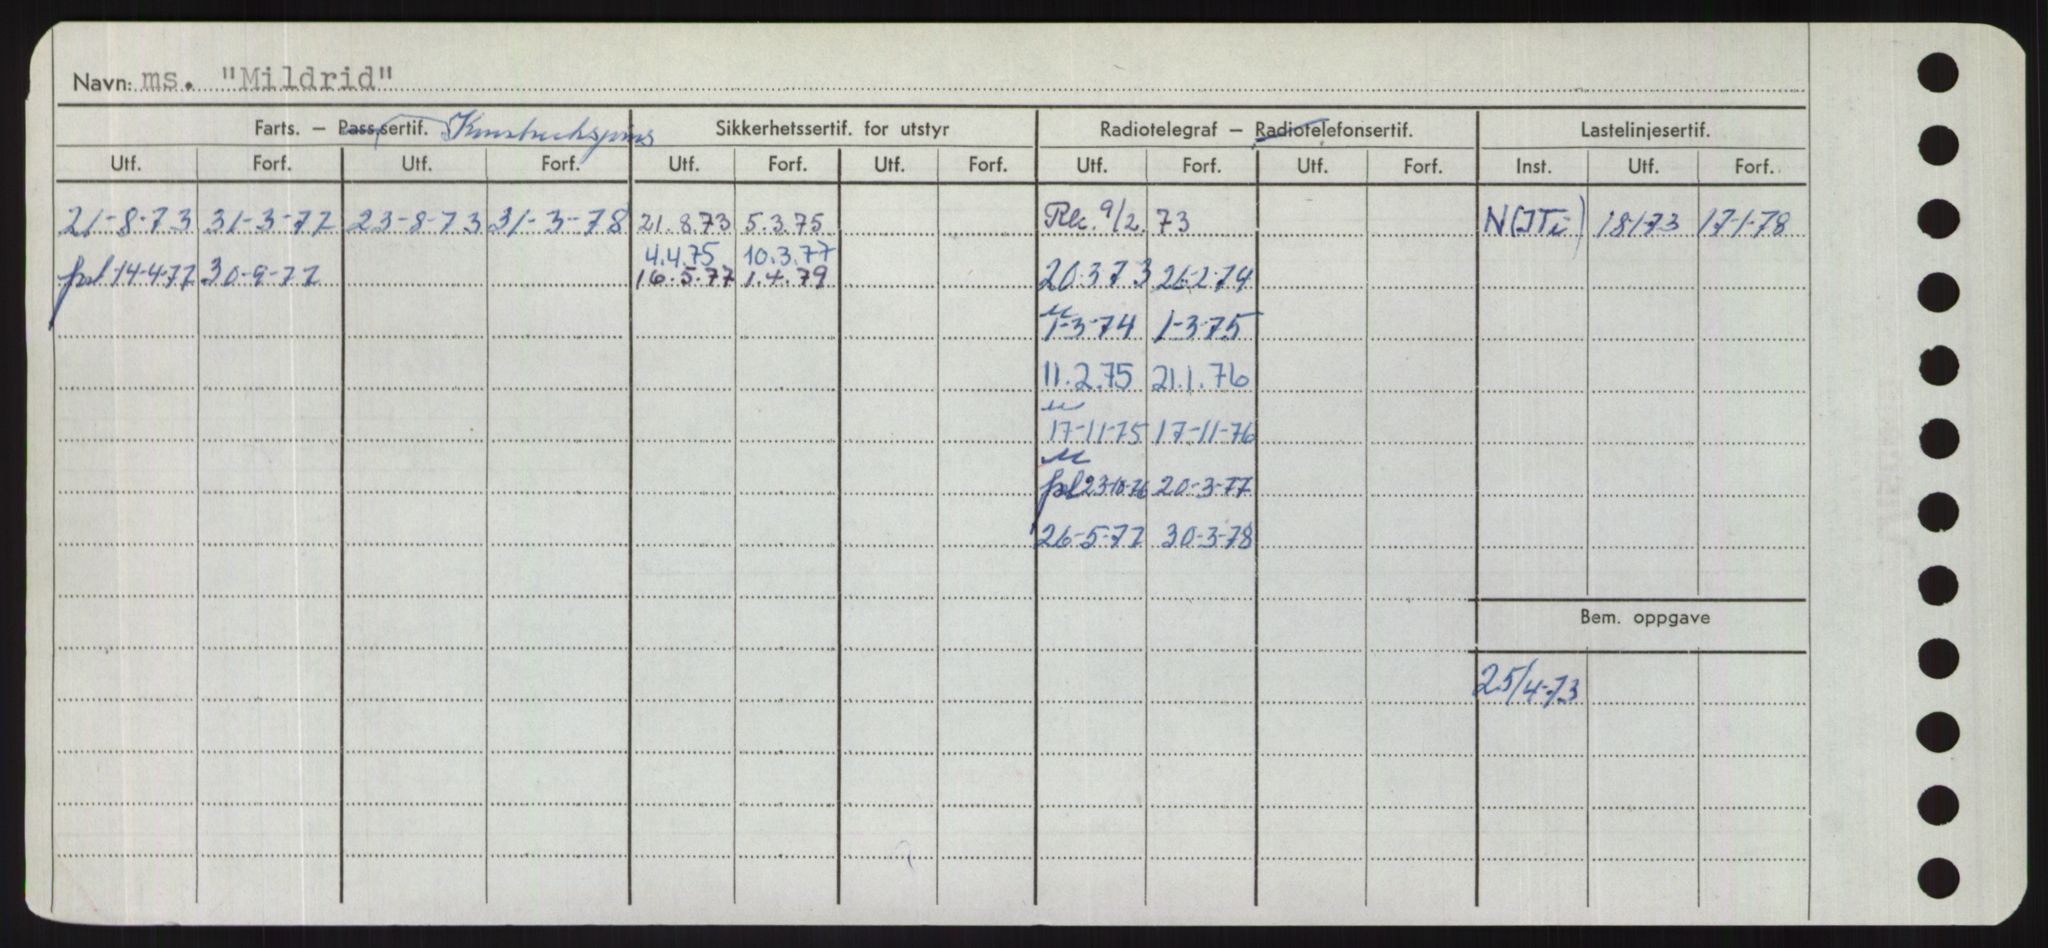 Navn: ms. "Mildrid"
Farts. – Pass.sertif. Sikkerhetssertif. for utstyr Radiotelegraf – Radiotelefonsertif. Lastelinjesertif.
Utf. Forf. Utf. Forf. Utf. Forf. Utf. Forf. Utf. Forf. Utf. Forf. Inst. Utf. Forf.
21-8-73 31-3-77 23-8-73 31-3-78 21.8.73 5.3.75 9/2.73 18-1-73 17-1-78
4.4.75 10.3.77
14-4-77 30-9-77 16.5.77 1.4.79 20.3.73 26-2-74
1-3-74 1-3-75
11.2.75 21.1.76
17-11-75 17-11-76
23-10-76 20-3-77
26-5-77 30-3-78
Bem. oppgave
25/4-73